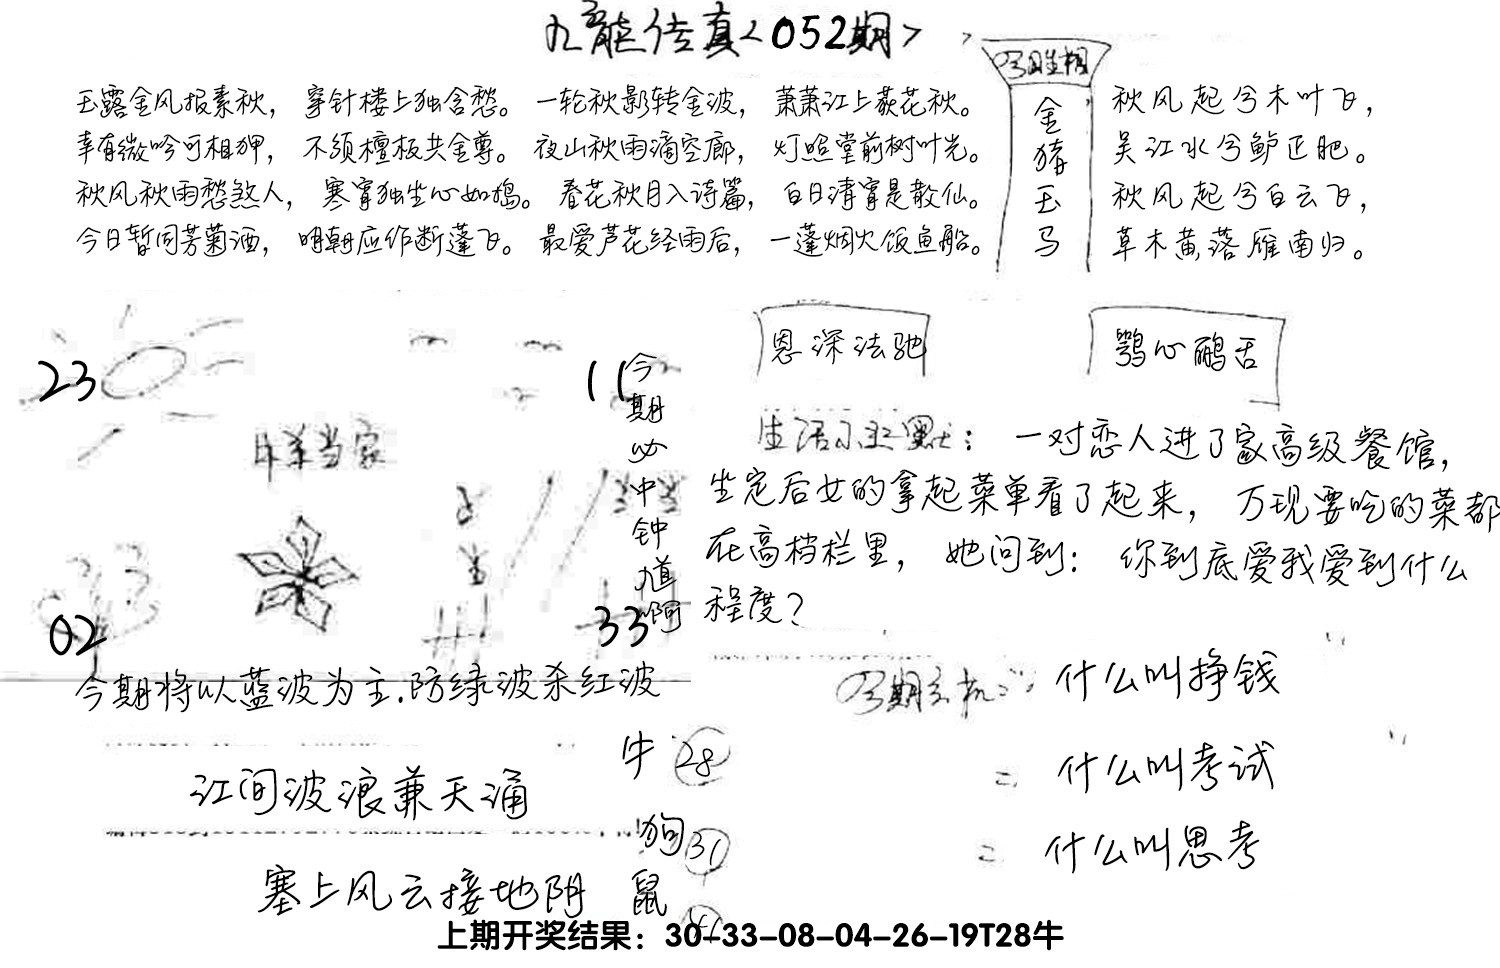 九龙传真<052期>
玉露金风报素秋，穿针楼上独含愁。一轮秋影转金波，萧萧江上荻花秋。
幸有微吟可相狎，不须檀板共金尊。夜山秋雨滴空廊，灯照堂前树叶光。
秋风秋雨愁煞人，寒宵独坐心如捣。春花秋月入诗篇，白日清宵是散仙。
今日暂同芳菊酒，明朝应作断蓬飞。最爱芦花经雨后，一蓬烟火饭鱼船。
金
猪
玉
马
秋风起兮木叶飞，
吴江水兮鲈正肥。
秋风起兮白云飞，
草木黄落雁南归。
23
11
羊当家
02
33
今期必中钟道啊
今期将以蓝波为主.防绿波杀红波
恩深法驰
鹗心鹂舌
生活小幽默：一对恋人进了家高级餐馆，
坐定后女的拿起菜单看了起来，万现要吃的菜都
在高档栏里，她问到：你到底爱我爱到什么
程度？
今期玄机：什么叫挣钱
= 什么叫考试
= 什么叫思考
江间波浪兼天涌
塞上风云接地阴
牛 28
狗 31
鼠
上期开奖结果：30-33-08-04-26-19T28牛